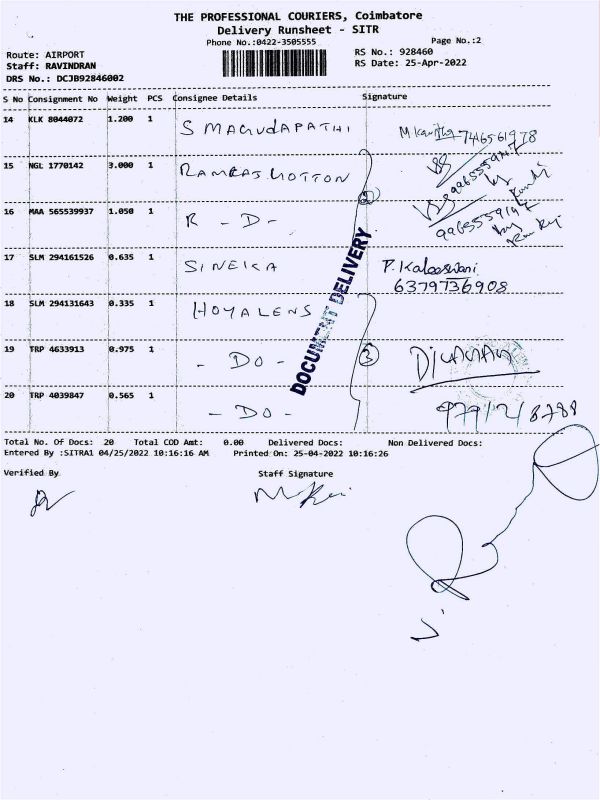 THE PROFESSIONAL COURIERS, Coimbatore
Delivery Runsheet - SITR
Phone No.:0422-3505555
Page No.:2
Route: AIRPORT
RS No.: 928460
Staff: RAVINDRAN
RS Date: 25-Apr-2022
DRS No.: DCJB92846002
S No Consignment No Weight PCS Consignee Details Signature
14 KLK 8044072 1.200 1 S MAGUDAPATHI
15 NGL 1770142 3.000 1
16 MAA 565539937 1.050 1 R - D -
17 SLM 294161526 0.635 1 SINEKA P. Kaleeswari
6379736908
18 SLM 294131643 0.335 1 HOYALENS
DOCUMENT DELIVERY
19 TRP 4633913 0.975 1 - DO - 3
20 TRP 4039847 0.565 1 - DO -
Total No. Of Docs: 20 Total COD Amt: 0.00 Delivered Docs: Non Delivered Docs:
Entered By :SITRA1 04/25/2022 10:16:16 AM Printed On: 25-04-2022 10:16:26
Verified By Staff Signature